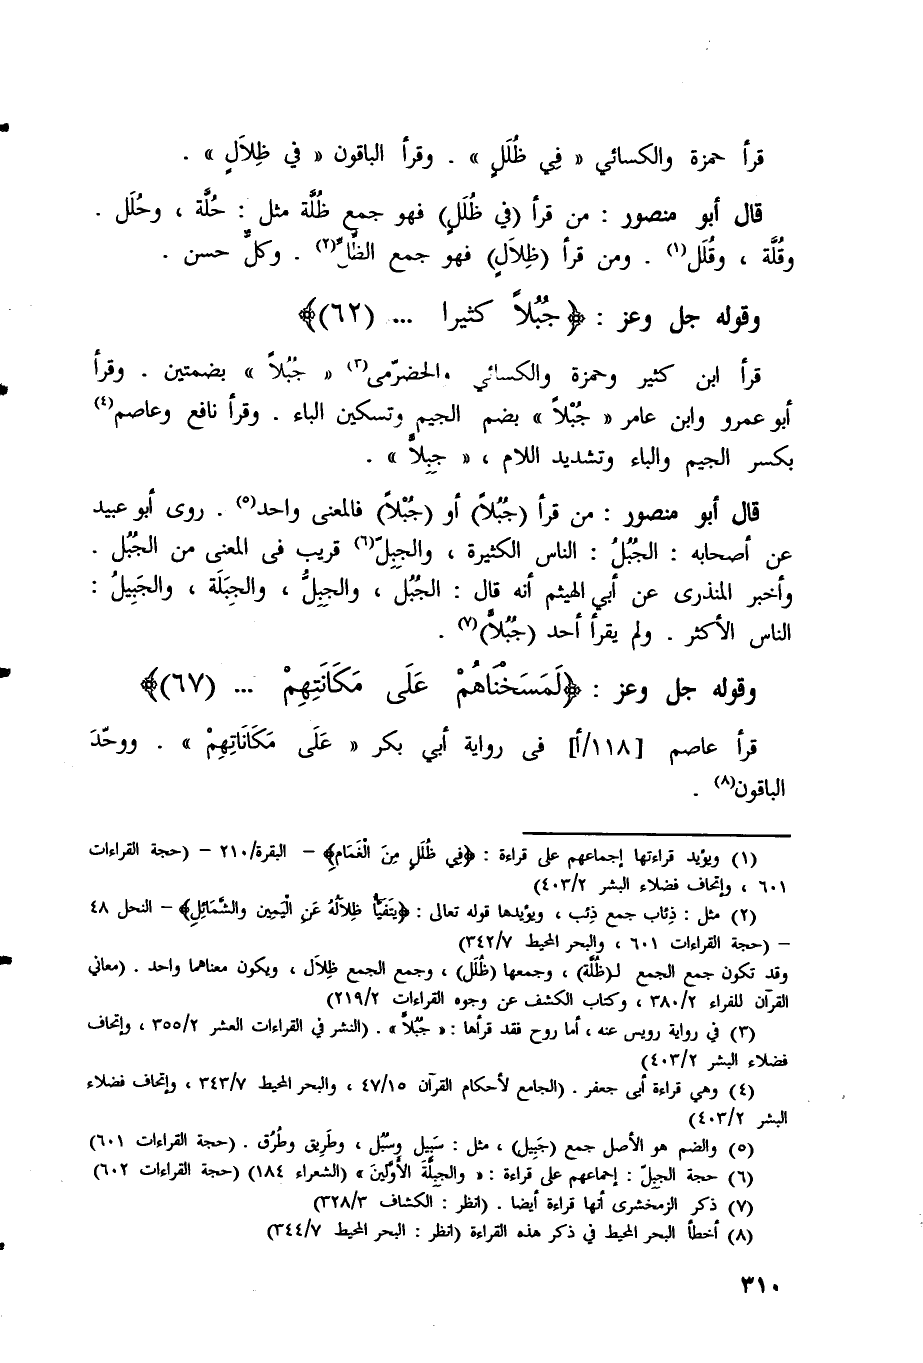 قرأ حمزة والكسائي « فِي ظُلَلٍ » . وقرأ الباقون « في ظِلاَلٍ » .
قال أبو منصور : من قرأ (في ظُلَلٍ) فهو جمع ظُلَّة مثل : حُلَّة ، وحُلَل .
وقُلَّة ، وقُلَل(١) . ومن قرأ (ظِلاَلٍ) فهو جمع الظِّلِّ(٢) . وكلٌّ حسن .
وقوله جل وعز : ﴿جُبُلاً كثيرا ... (٦٢)﴾
قرأ ابن كثير وحمزة والكسائي والحضرّمى(٣) « جُبُلاً » بضمتين . وقرأ
أبو عمرو وابن عامر « جُبْلاً » بضم الجيم وتسكين الباء . وقرأ نافع وعاصم(٤)
بكسر الجيم والباء وتشديد اللام ، « جِبِلاًّ » .
قال أبو منصور : من قرأ (جُبُلاً) أو (جُبْلاً) فالمعنى واحد(٥) . روى أبو عبيد
عن أصحابه : الجُبُلُ : الناس الكثيرة ، والجِبِلّ(٦) قريب فى المعنى من الجُبُل .
وأخبر المنذرى عن أبي الهيثم أنه قال : الجُبُل ، والجِبِلُّ ، والجِبَلَة ، والجَبِيلُ :
الناس الأكثر . ولم يقرأ أحد (جُبُلاًّ)(٧) .
وقوله جل وعز : ﴿لَمَسَخْنَاهُمْ عَلَى مَكَانَتِهِمْ ... (٦٧)﴾
قرأ عاصم [١١٨/أ] فى رواية أبي بكر « عَلَى مَكَانَاتِهِمْ » . ووحّدَ
الباقون(٨) .
(١) ويؤيد قراءتها إجماعهم على قراءة : ﴿فِي ظُلَلٍ مِنَ الْغَمَامِ﴾ – البقرة/٢١٠ – (حجة القراءات
٦٠١ ، وإتحاف فضلاء البشر ٤٠٣/٢)
(٢) مثل : ذِئاب جمع ذِئب ، ويؤيدها قوله تعالى : ﴿يَتَفَيَّأُ ظِلاَلُهُ عَنِ الْيَمِينِ والشَّمَائِلِ﴾ – النحل ٤٨
– (حجة القراءات ٦٠١ ، والبحر المحيط ٣٤٢/٧)
وقد تكون جمع الجمع لـ(ظُلَّة) ، وجمعها (ظُلَل) ، وجمع الجمع ظِلاَل ، ويكون معناهما واحد . (معاني
القرآن للفراء ٣٨٠/٢ ، وكتاب الكشف عن وجوه القراءات ٢١٩/٢)
(٣) في رواية رويس عنه ، أما روح فقد قرأها : « جُبُلاًّ » . (النشر في القراءات العشر ٣٥٥/٢ ، وإتحاف
فضلاء البشر ٤٠٣/٢)
(٤) وهي قراءة أبى جعفر . (الجامع لأحكام القرآن ٤٧/١٥ ، والبحر المحيط ٣٤٣/٧ ، وإتحاف فضلاء
البشر ٤٠٣/٢)
(٥) والضم هو الأصل جمع (جَبِيل) ، مثل : سَبِيل وسُبُل ، وطَرِيق وطُرُق . (حجة القراءات ٦٠١)
(٦) حجة الجِبِلّ : إجماعهم على قراءة : « والجِبِلَّةَ الأَوَّلِينَ » (الشعراء ١٨٤) (حجة القراءات ٦٠٢)
(٧) ذكر الزمخشرى أنها قراءة أيضا . (انظر : الكشاف ٣٢٨/٣)
(٨) أخطأ البحر المحيط في ذكر هذه القراءة (انظر : البحر المحيط ٣٤٤/٧)
٣١٠